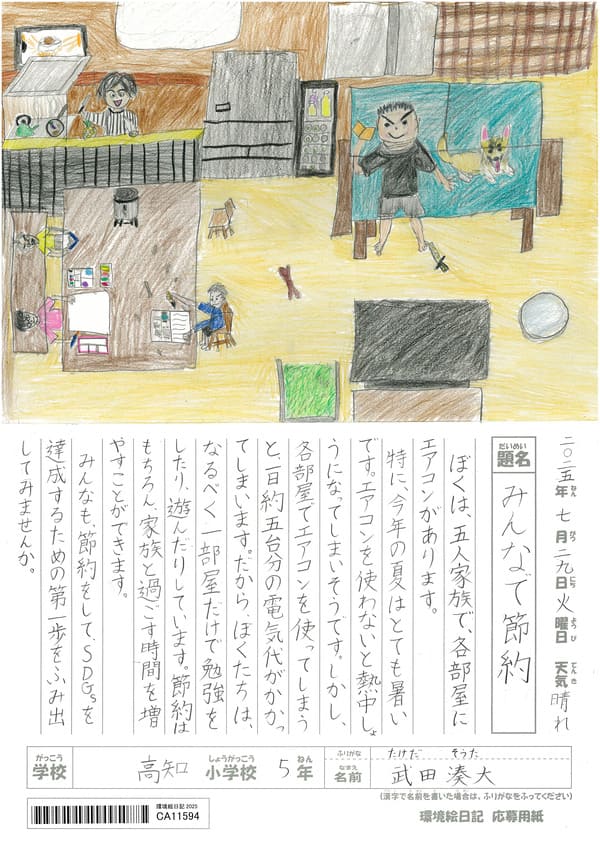 二〇二五年 七月 二九日 火曜日 天気 晴れ
ねん がつ にち ようび てんき
だいめい
題名 みんなで節約
ぼくは、五人家族で、各部屋に
エアコンがあります。
特に、今年の夏はとても暑い
です。エアコンを使わないと熱中しょ
うになってしまいそうです。しかし、
各部屋でエアコンを使ってしまう
と、一日約五台分の電気代がかかっ
てしまいます。だから、ぼくたちは、
なるべく一部屋だけで勉強を
したり、遊んだりしています。節約は
もちろん、家族と過ごす時間を増
やすことができます。
みんなも、節約をして、SDGsを
達成するための第一歩をふみ出
してみませんか。
がっこう しょうがっこう ねん
学校 高知 小学校 5年
ふりがな たけだ そうた
なまえ
名前 武田湊大
(漢字で名前を書いた場合は、ふりがなをふってください)
環境絵日記 2025
CA11594
環境絵日記 応募用紙